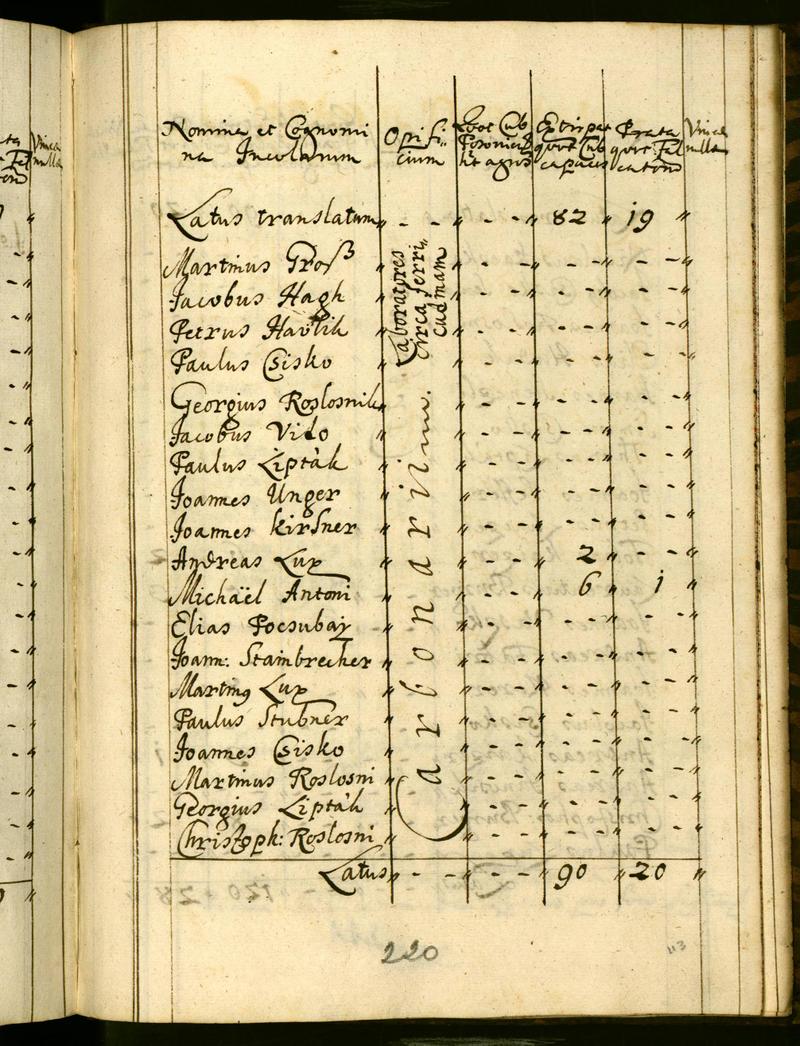 Nomina et Cognomi
na Incolarum
Opifi:
cium
Quot Cub
Posonien
sit agros
Extirpat
quot Cub
capaces
Prata
quot Fal
catorū
Vinea
nulla
Latus translatum „ - - „ - - „ 82 „ 19 „
Laboratores
circa ferri„
cudinam
Carbonarii
Martinus Groß „ „ - - „ - - „ - - „
Jacobus Hagh „ „ - - „ - - „ - - „
Petrus Havlik „ „ - - „ - - „ - - „
Paulus Csisko „ „ - - „ - - „ - - „
Georgius Roslosnik „ „ - - „ - - „ - - „
Jacobus Vido „ „ - - „ - - „ - - „
Paulus Liptàk „ „ - - „ - - „ - - „
Joannes Unger „ „ - - „ - - „ - - „
Joannes Kirsner „ „ - - „ - - „ - - „
Andreas Lux „ „ - - „ 2 „ - - „
Michaël Antoni „ „ - - „ 6 „ 1 „
Elias Pocsubay „ „ - - „ - - „ - - „
Joann: Stainbrecher „ „ - - „ - - „ - - „
Martinꝰ Lux „ „ - - „ - - „ - - „
Paulus Stubner „ „ - - „ - - „ - - „
Joannes Csisko „ „ - - „ - - „ - - „
Martinus Roslosni „ „ - - „ - - „ - - „
Georgius Liptàk „ „ - - „ - - „ - - „
Christoph: Roslosni „ „ - - „ - - „ - - „
Latus „ - - „ - - „ 90 „ 20 „
220
113